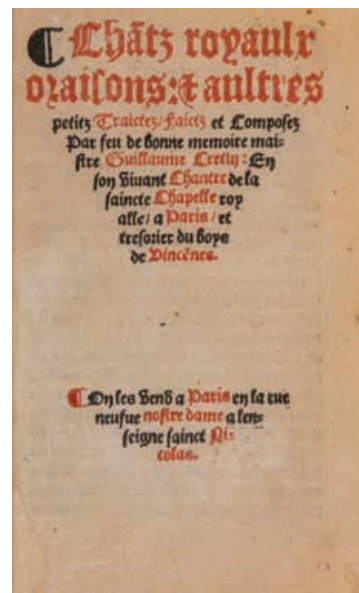 ¶ Chãtz royaulx
oraisons: & aultres
petitz Traictez/ faictz et Composez
Par feu de bonne memoire mai-
stre Guillaume Cretin: En
son vivant Chantre de la
saincte Chapelle roy
alle/ a Paris/ et
tresorier du boys
de Vincẽnes.
¶ On les vend a Paris en la rue
neufue nostre dame a len-
seigne sainct Ni-
colas.